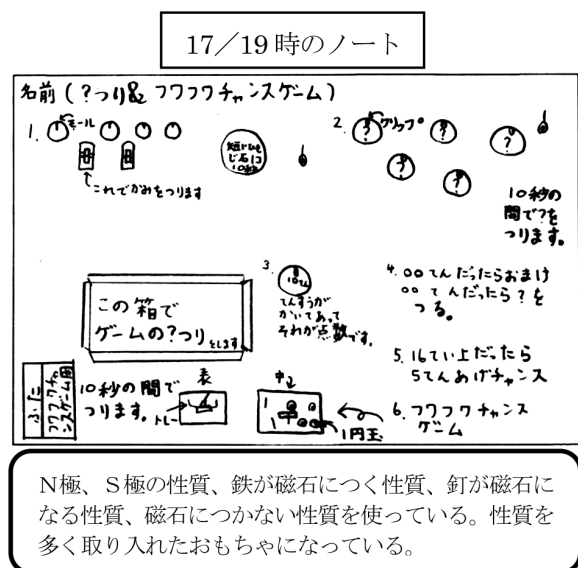 17／19時のノート
名前（?つり& フワフワチャンスゲーム）
1.
モール
これでかみをつります
短いひも
じ石に
10秒
2.
?
クリップ
?
?
?
?
10秒の
間で?を
つります。
この箱で
ゲームの?つり
をします
3.
10てん
てんすうが
かいてあって
それが点数です。
4. ○○てんだったらおまけ
○○てんだったら?を
つる。
5. 16てい上だったら
5てんあげチャンス
6. フワフワチャンス
ゲーム
ふた
フワフワチャ
ンスゲーム用
10秒の間で
つります。
表
トレー
中
1円玉
N極、S極の性質、鉄が磁石につく性質、釘が磁石に
なる性質、磁石につかない性質を使っている。性質を
多く取り入れたおもちゃになっている。